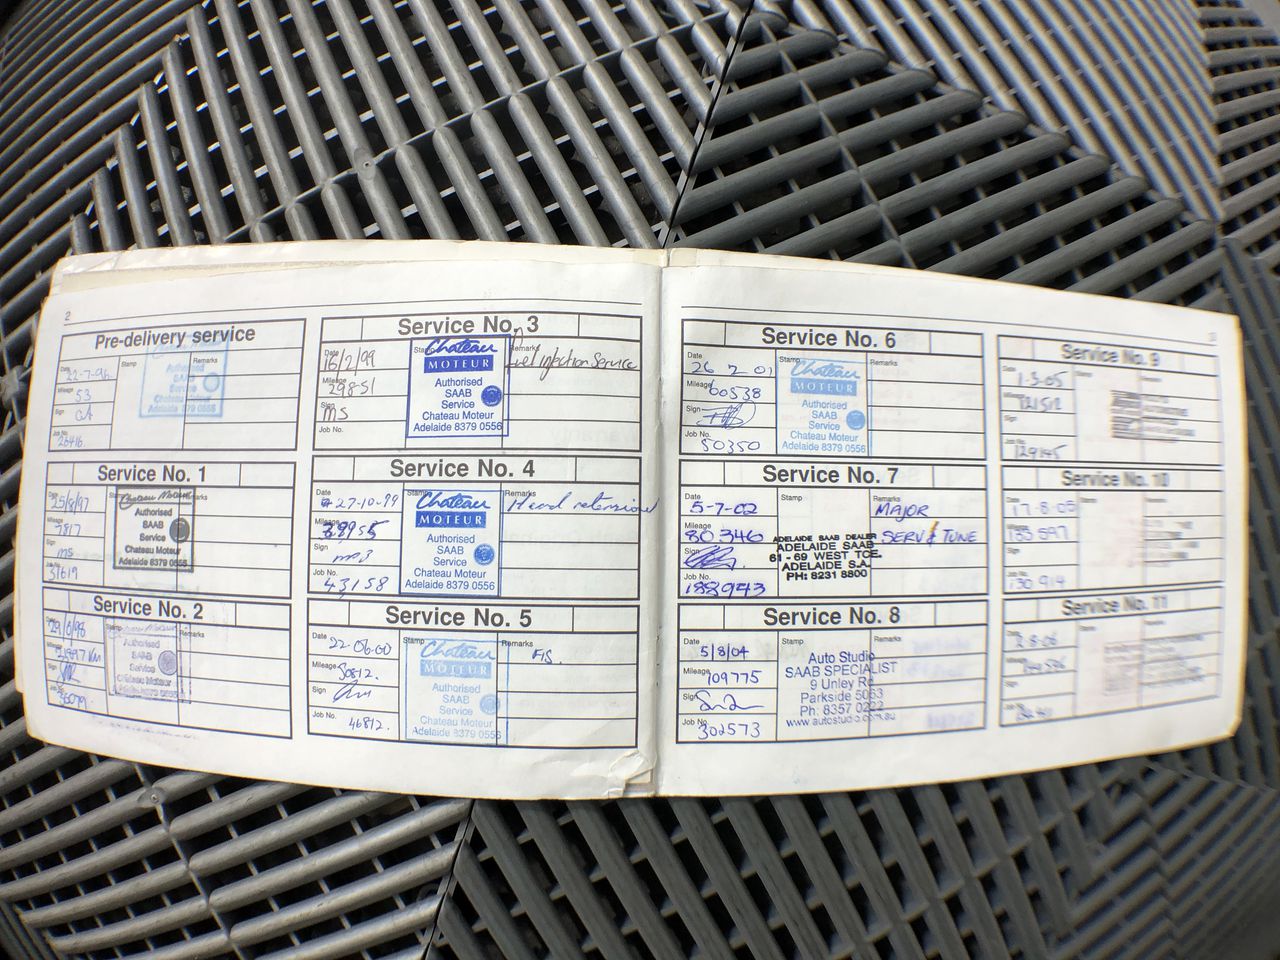 2
Pre-delivery service
Date
22-7-96
Mileage
53
Sign
Job No.
26416.
Stamp
Remarks
Authorised
SAAB
Service
Chateau Moteur
Adelaide 8379 0556
Service No. 1
Date
25/8/97
7817
MS
31619
Chateau Moteur
Authorised
SAAB
Service
Chateau Moteur
Adelaide 8379 0556
Service No. 2
29/6/98
Remarks
Authorised
SAAB
Service
Chateau Moteur
Adelaide 8379 0556
Service No. 3
Date
16/2/99
Mileage
29851
Sign
MS
Job No.
Stamp
Chateau
MOTEUR
Authorised
SAAB
Service
Chateau Moteur
Adelaide 8379 0556
Remarks
fuel injection Service
Service No. 4
Date
27-10-99
Mileage
Sign
Job No.
43158
Stamp
Chateau
MOTEUR
Authorised
SAAB
Service
Chateau Moteur
Adelaide 8379 0556
Remarks
Service No. 5
Date
22-06-00
Mileage
50812.
Sign
Job No.
46812.
Stamp
Chateau
MOTEUR
Authorised
SAAB
Service
Chateau Moteur
Adelaide 8379 0556
Remarks
Service No. 6
Date
26 2 01
Mileage
60538
Sign
Job No.
50350
Stamp
Chateau
MOTEUR
Authorised
SAAB
Service
Chateau Moteur
Adelaide 8379 0556
Remarks
Service No. 7
Date
5-7-02
Mileage
80346
Sign
Job No.
188943
Stamp
ADELAIDE SAAB DEALER
ADELAIDE SAAB
61 - 69 WEST TCE.
ADELAIDE S.A.
PH: 8231 8800
Remarks
MAJOR
SERV & TUNE
Service No. 8
Date
5/8/04
Mileage
109775
Sign
Job No.
302573
Stamp
Auto Studio
SAAB SPECIALIST
9 Unley Rd
Parkside 5063
Ph: 8357 0222
www.autostudio.com.au
Remarks
Service No. 9
Date
1-3-05
Service No. 10
17-8-05
133597
130914
Service No. 11